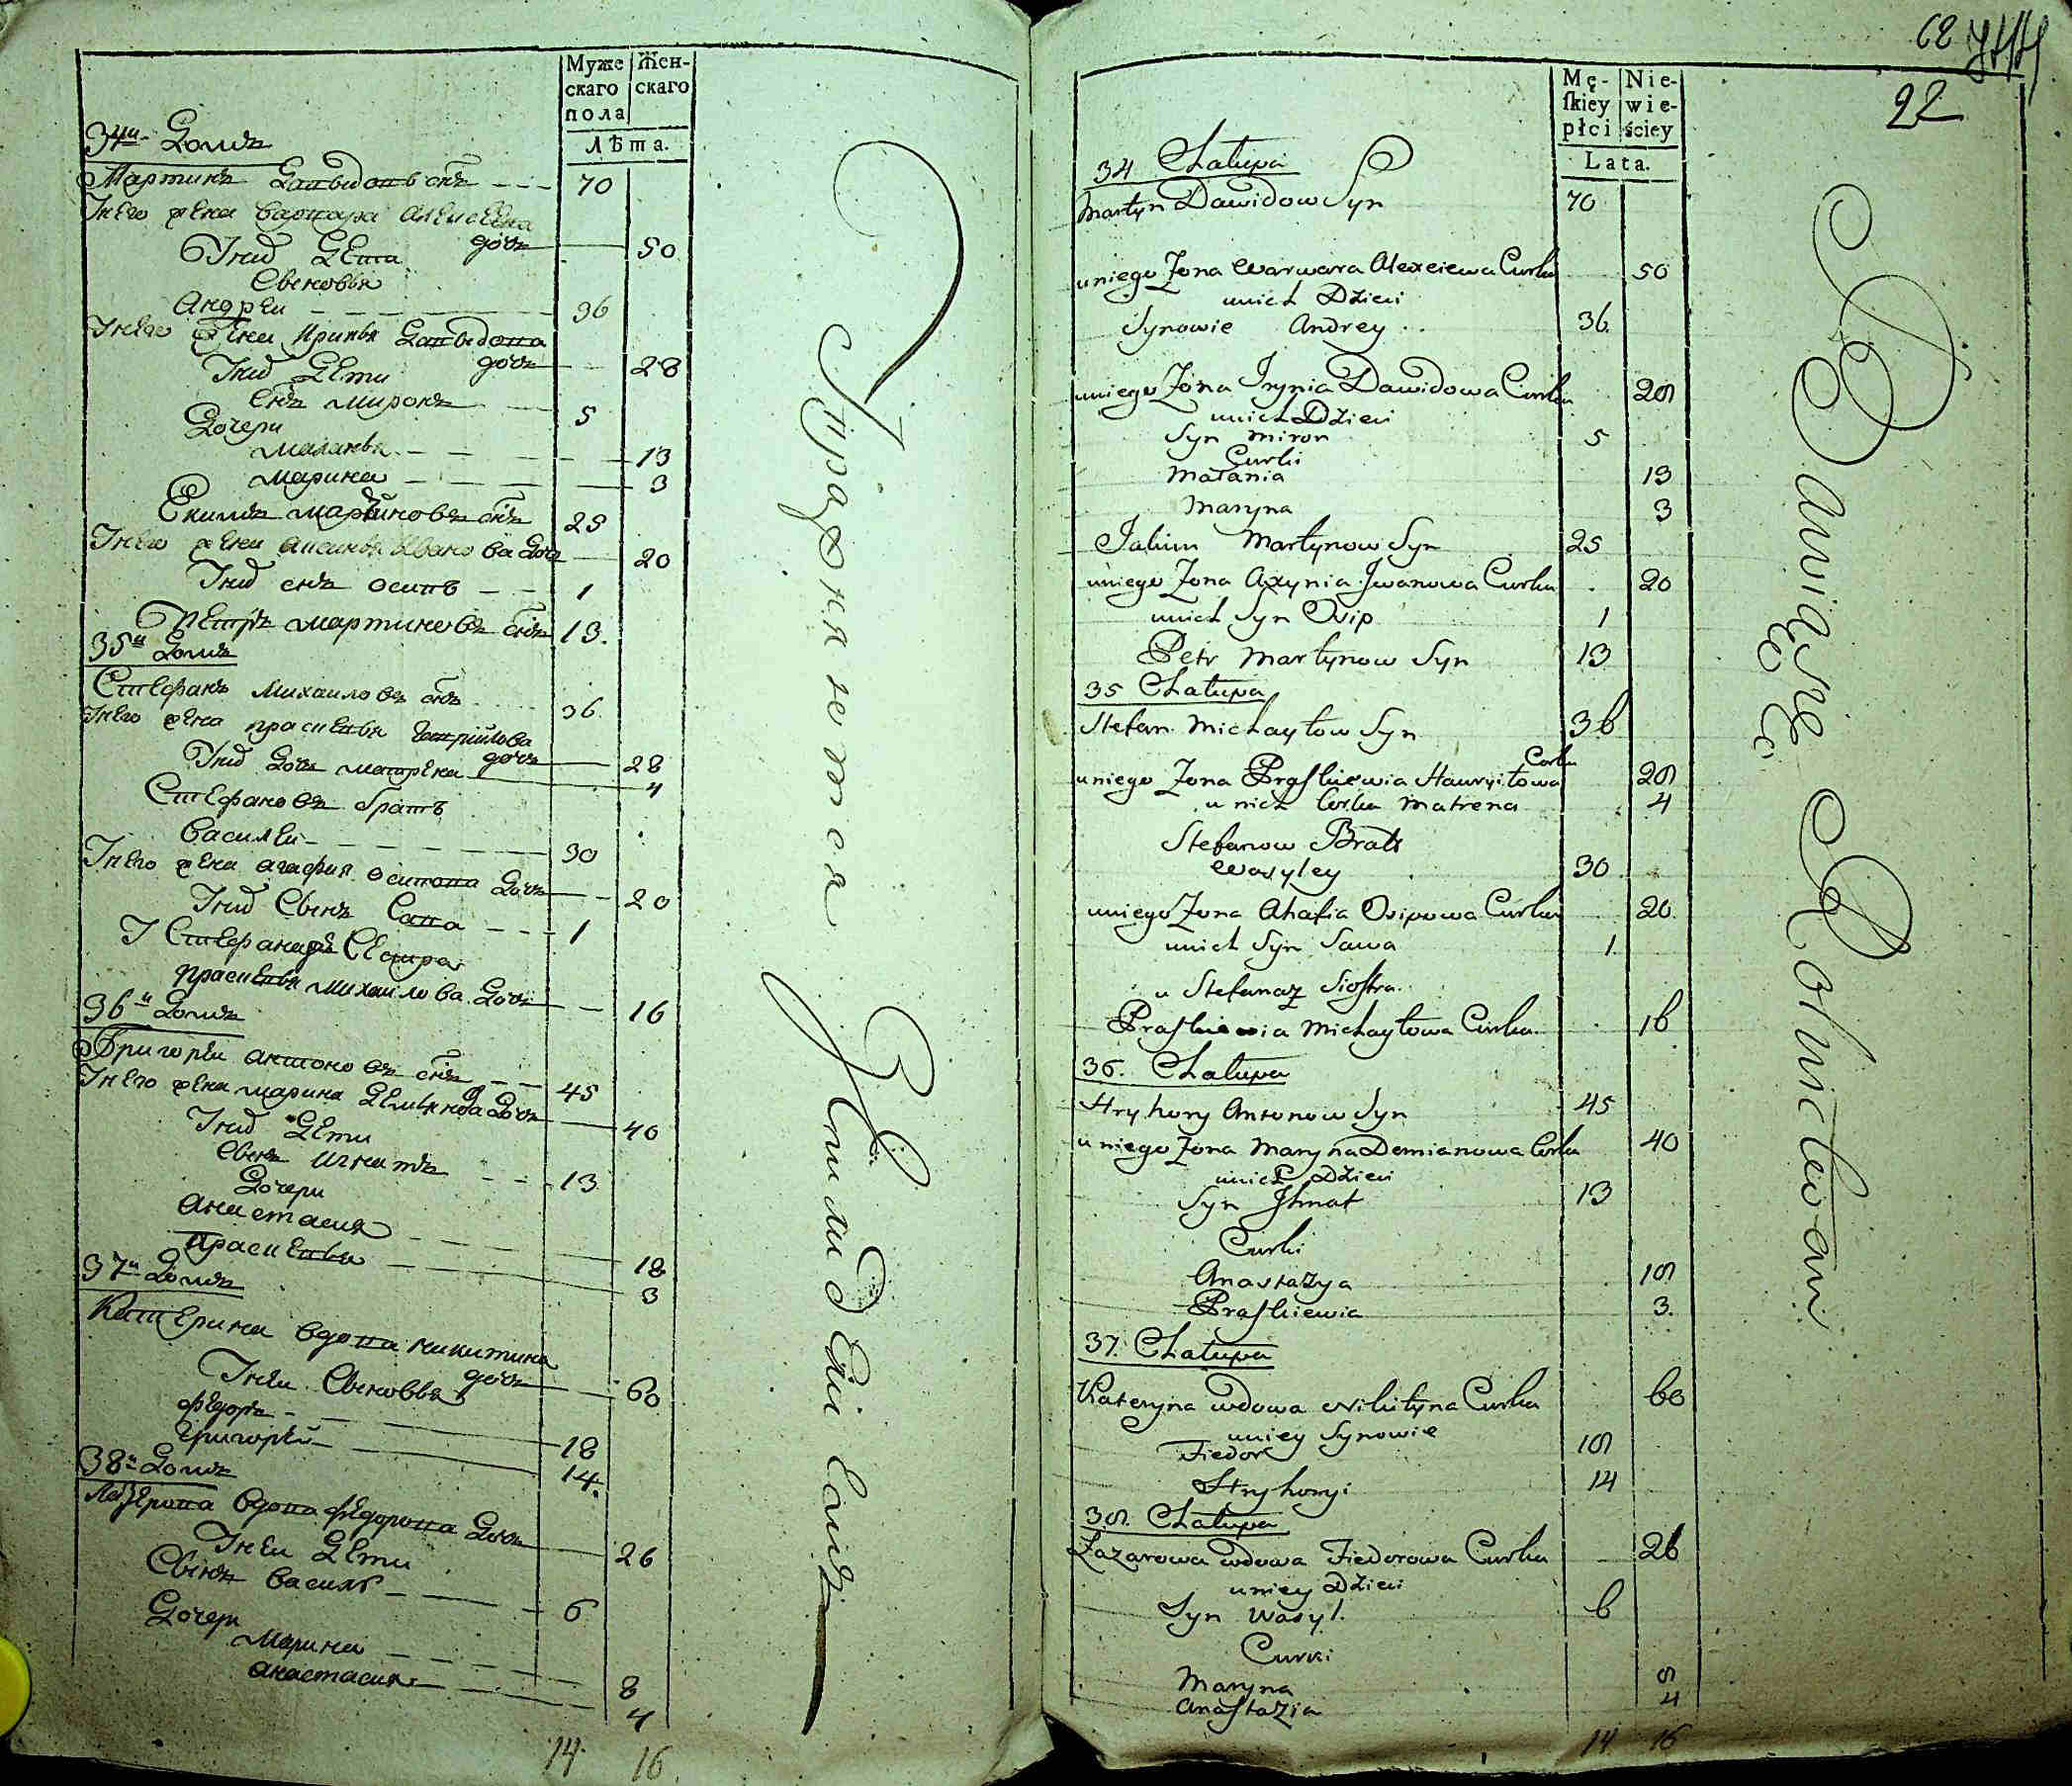 Муже
скаго
пола
Жен-
скаго
Лѣта.
34й Домъ
Мартинъ Давыдовъ снъ 70
Унего жена Варвара Алексеева
дочь 50
Уних Дети
Сыновья
Андреи 36
Унего жена Иринья Давыдова
дочь 28
Уних Дети
Снъ Миронъ 5
Дочери
Маланья 13
Марина 3
Екимъ Мартиновъ снъ 25
Унего жена Аксинья Иванова Дочь 20
Уних снъ Осипъ 1
Петръ Мартиновъ снъ 13.
35й Домъ
Стефанъ Михаиловъ снъ 36.
Унего жена Прасковья Гаврилова
дочь 28
Уних Дочь Матрена 4
Стефановъ Братъ
Василеи 30
Унего жена Агафия Осипова Дочь 20
Уних Сынъ Сава 1
У Стефана же Сестра
Прасковья Михаилова Дочь 16
36й Домъ
Григореи Антоновъ снъ 45
Унего жена Марина Демьянова Дочь 40
Уних Дети
Сынъ Игнатъ 13
Дочери
Анастасия 18
Прасковья 3
37й Домъ
Катерина вдова Никитина
дочь 60
Унеи Сыновья
Федоръ 18
Григореи 14.
38й Домъ
Лазерова вдова Федорова Дочь 26
Унеи Дети
Сынъ Василь 6
Дочери
Марина 8
Анастасия 4
14 16
Упражняется
Землиделием
62
22
Mę-
skiey
płci
Nie-
wie-
ściey
Lata.
34 Chałupa
Martyn Dawidow Syn 70
uniego Zona Warwara Alexeiewa Curka 50
unich Dzieci
Synowie Andrey 36.
uniego Zona Irynia Dawidowa Curka 28
unich Dzieci
Syn Miron 5
Curki
Małania 13
Maryna 3
Jakim Martynow Syn 25
uniego Zona Axynia Jwanowa Curka 20
unich Syn Osip 1
Petr Martynow Syn 13
35 Chałupa
Stefan Michayłow Syn 36
Corka
uniego Zona Praskiewia Hawryiłowa 28
u nich Corka Matrena 4
Stefanow Brat
Wasyley 30
uniego Zona Ahafia Osipowa Curka 20.
unich Syn Sawa 1.
u Stefanaz Siostra
Praskiewia Michayłowa Curka 16
36. Chałupa
Hryhory Antonow Syn 45
u niego Zona Maryna Demianowa Corka 40
unich Dzieci
Syn Ihnat 13
Curki
Anastazya 18
Praskiewia 3.
37. Chałupa
Kateryna wdowa Nikityna Curka 60
uniey Synowie
Fiedor 18
Hryhoryi 14
38. Chałupa
Łazarowa wdowa Fiedorowa Curka 26
uniey Dzieci
Syn Wasyl. 6
Curki
Maryna 8
Anastazia 4
14 16
Bawią się Rolnictwem